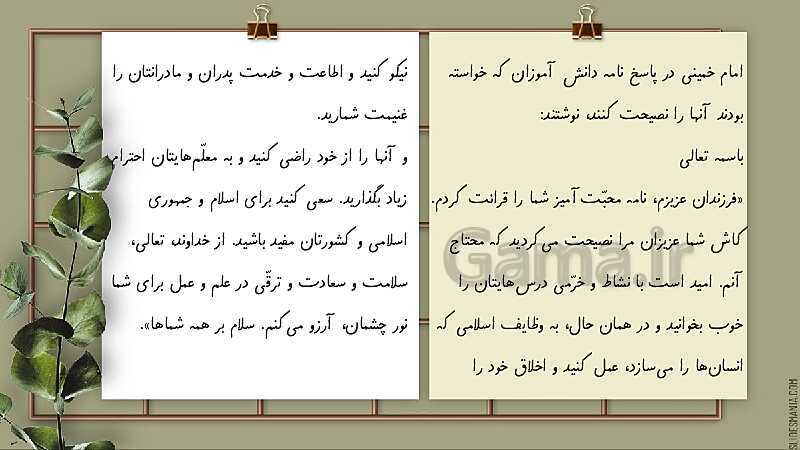 امام خمینی در پاسخ نامه دانش آموزان که خواسته
بودند آنها را نصیحت کنند، نوشتند:
باسمه تعالی
«فرزندان عزیزم، نامه محبّت آمیز شما را قرائت کردم.
کاش شما عزیزان مرا نصیحت می‌کردید که محتاج
آنم. امید است با نشاط و خرّمی درس‌هایتان را
خوب بخوانید و در همان حال، به وظایف اسلامی که
انسان‌ها را می‌سازد، عمل کنید و اخلاق خود را
نیکو کنید و اطاعت و خدمت پدران و مادرانتان را
غنیمت شمارید.
و آنها را از خود راضی کنید و به معلّم‌هایتان احترام
زیاد بگذارید. سعی کنید برای اسلام و جمهوری
اسلامی و کشورتان مفید باشید. از خداوند، تعالی،
سلامت و سعادت و ترقّی در علم و عمل برای شما
نور چشمان، آرزو می‌کنم. سلام بر همه شماها».
Gama.ir
SLIDESMANIA.COM